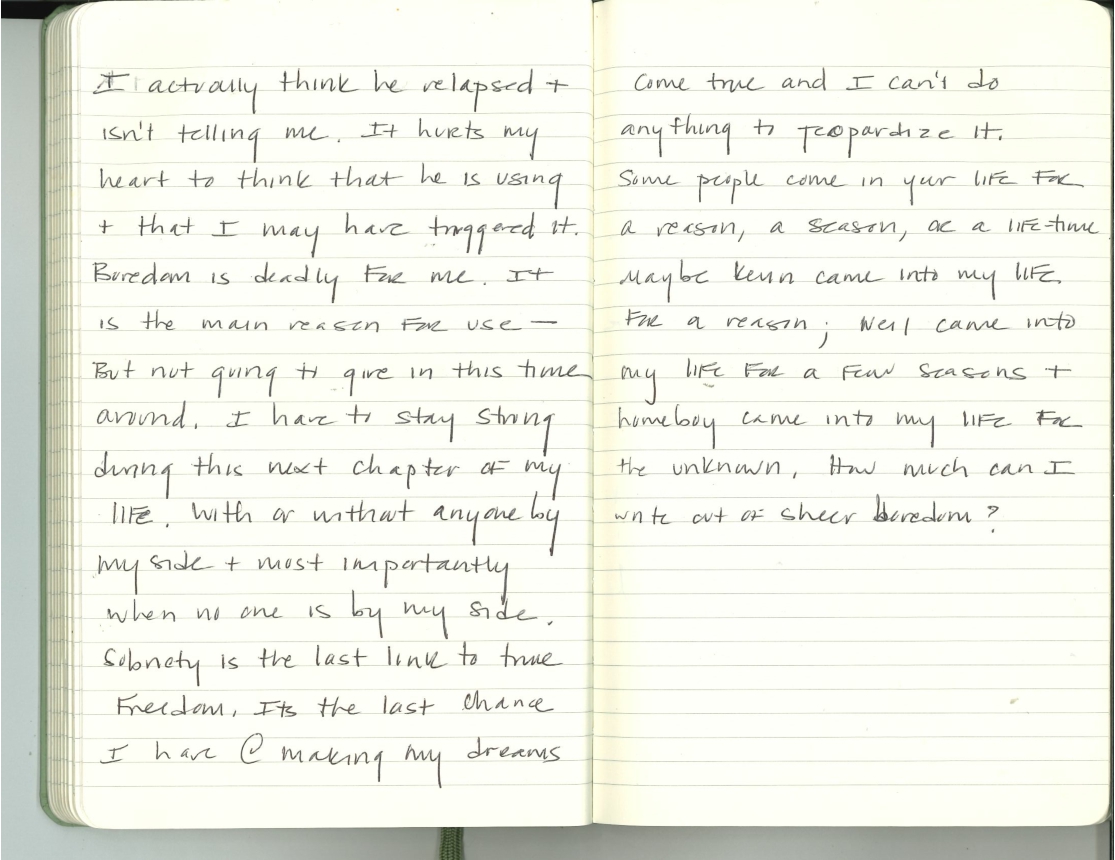 I actually think he relapsed +
isn't telling me. It hurts my
heart to think that he is using
+ that I may have triggered it.
Boredom is deadly for me. It
is the main reason for use —
But not going to give in this time
around. I have to stay strong
during this next chapter of my
life. With or without anyone by
my side + most importantly
when no one is by my side.
Sobriety is the last link to true
Freedom. Its the last chance
I have @ making my dreams
come true and I can't do
anything to jeopardize it.
Some people come in your life for
a reason, a season, or a life-time
Maybe came into my life
for a reason; Neil came into
my life for a few seasons +
homeboy came into my life for
the unknown. How much can I
write out of sheer boredom?